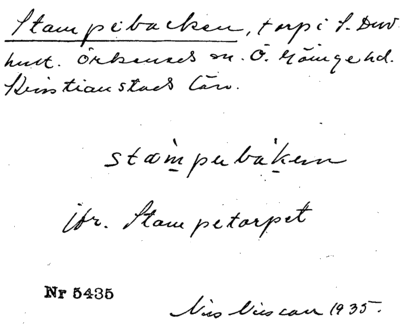 Stampebacken, torp i S. Duv-
hult. Örkeneds sn. Ö. Göinge hd.
Kristianstads län.
stampebakenn
jfr. Stampetorpet
Nr 5435
Nils Nilsson 1935.